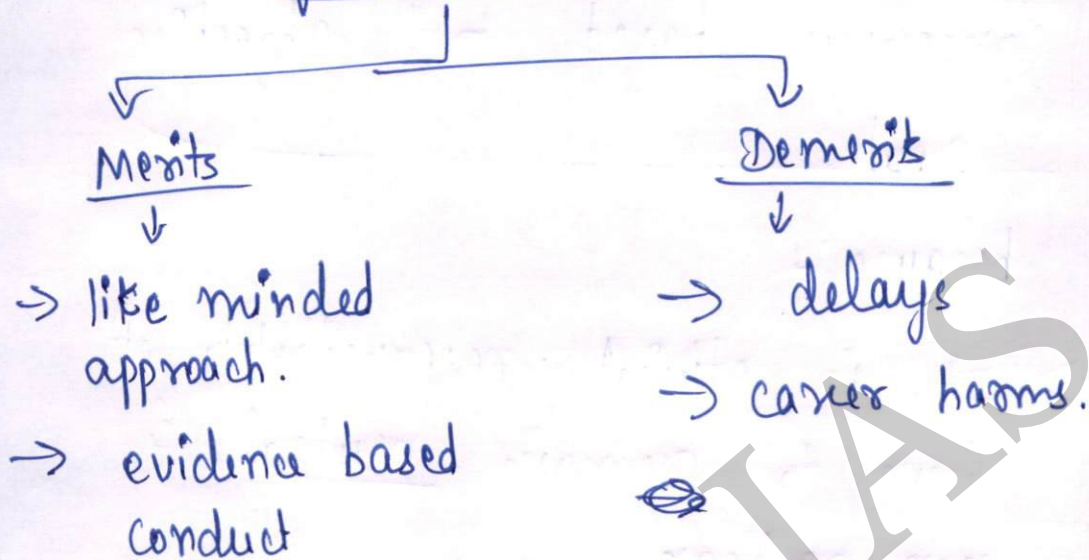 Merits
→ like minded
approach.
→ evidence based
conduct
Demerits
→ delays
→ career harms.
IAS